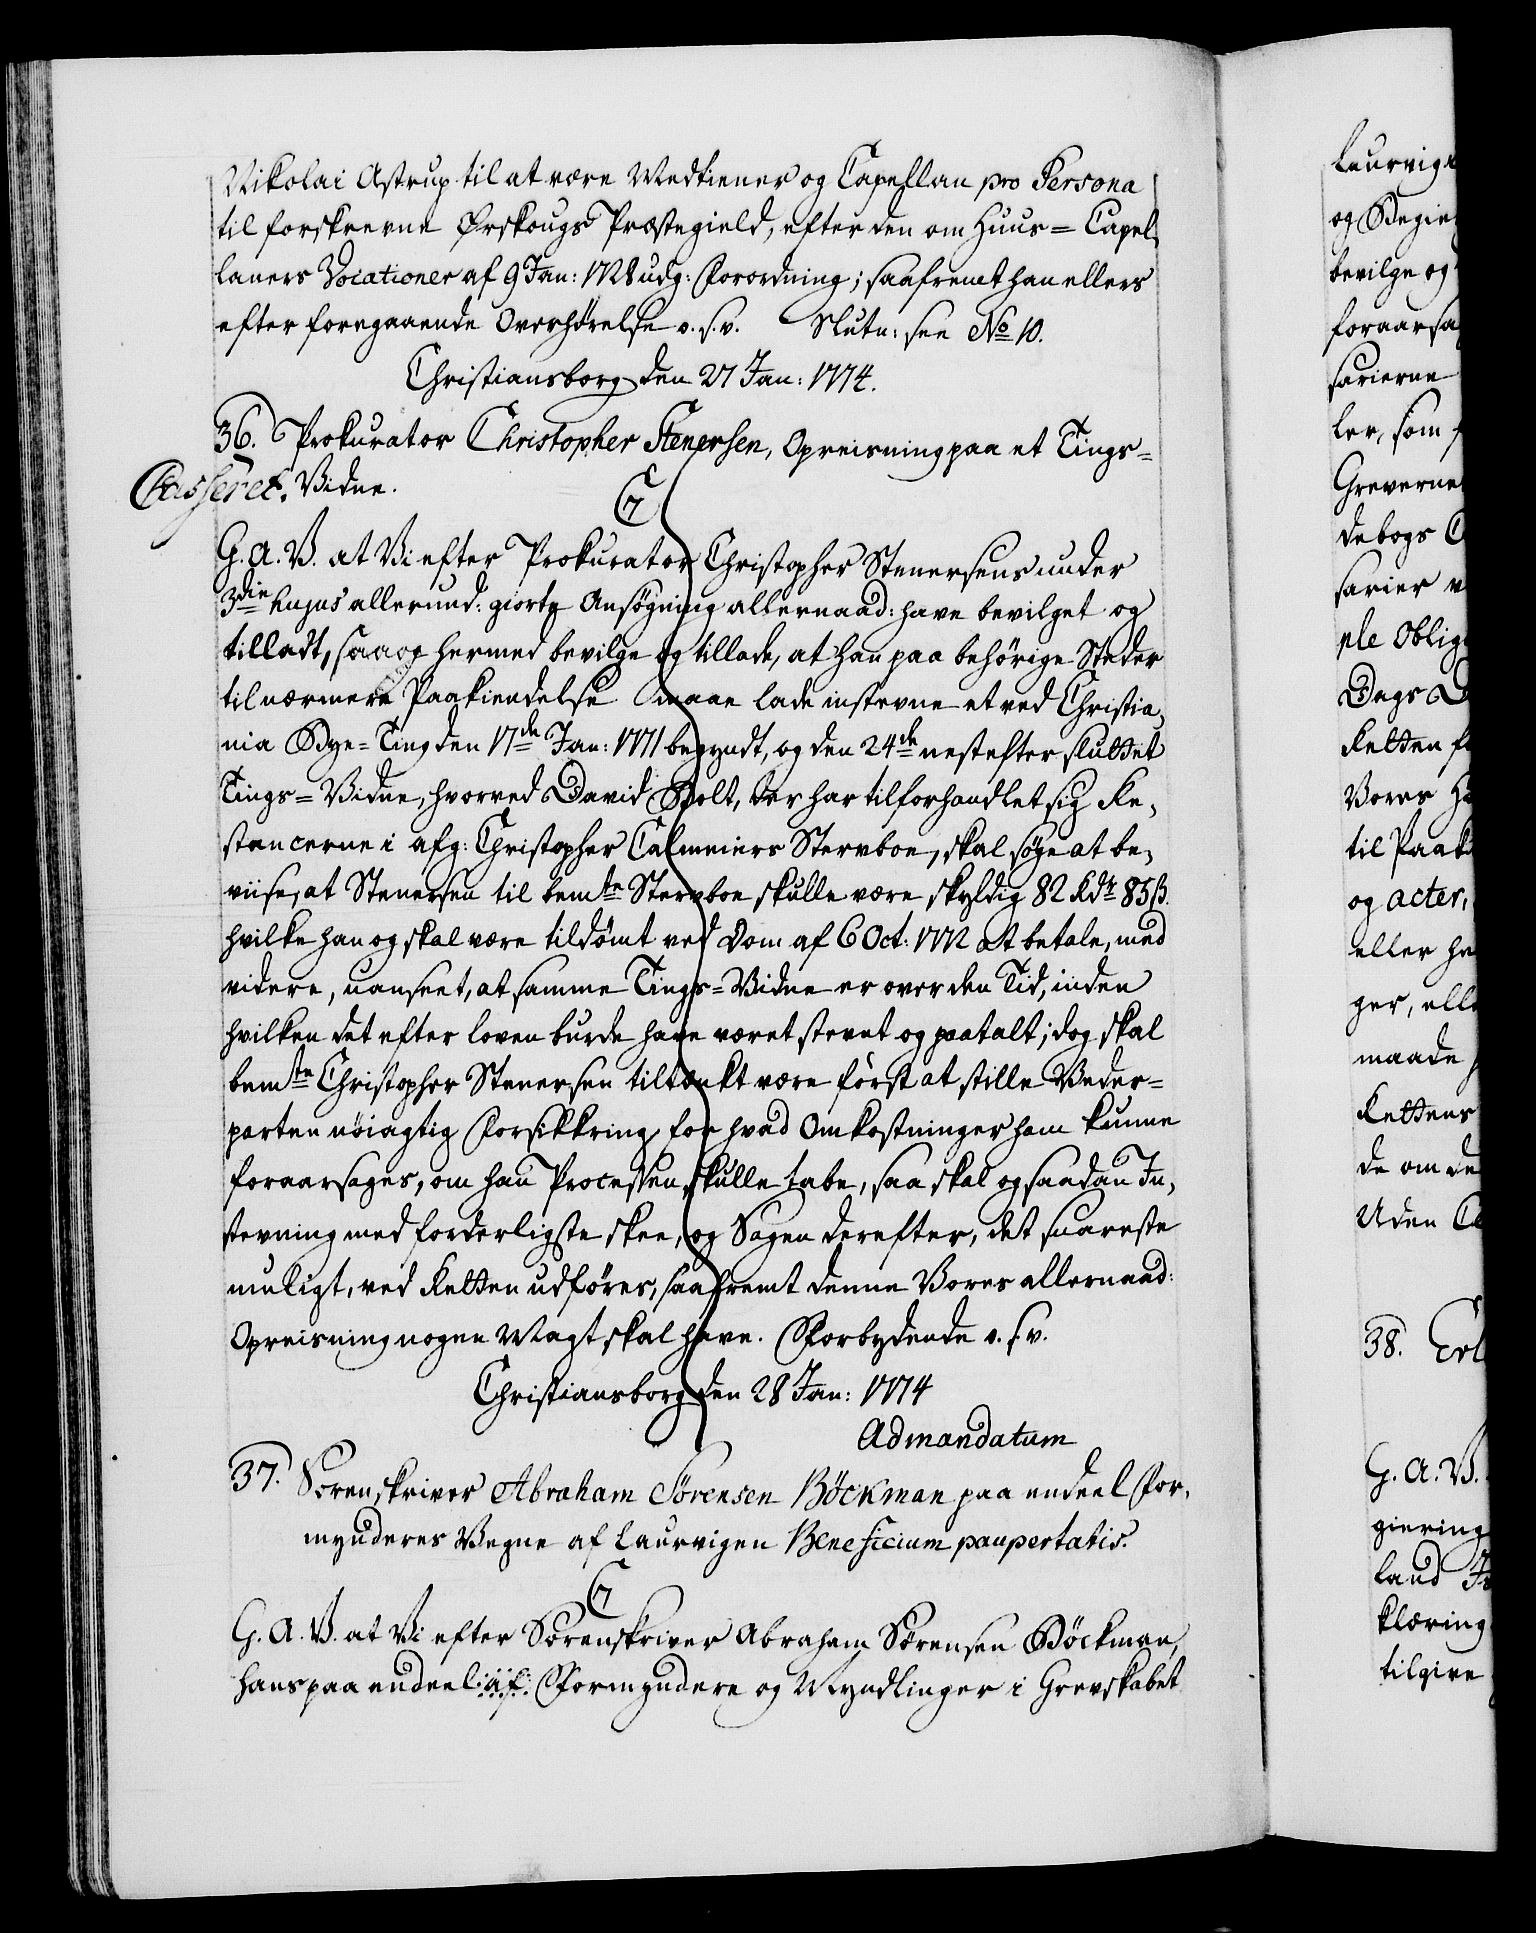 Nikolai Astrup til at være Medtiener og Capellan pro Persona
til forskrevne Ørskougs Præstegield, efter den om Huus= Capel,
laners Vocationer af 9 Jan: 1728 udg: Forordning; saafremt han ellers
efter foregaaende Overhørelse o. s. v. Slutn: see No 10.
Christiansborg den 27 Jan: 1774.
36. Prokurator Christopher Stenersen, Opreisning paa et Tings=
Casseret. Vidne.
G. A. V. at Vi efter Prokurator Christopher Stenersens under
3die hujus allerund: giorte Ansøgning allernaad: have bevilget og
tilladt, saa og hermed bevilge og tillade, at han paa behørige Steder
til nærmere Paakiendelse maae lade instevne et ved Christia,
nia Bye=Ting den 17de Jan: 1771 begyndt, og den 24de nestefter sluttet
Tings=Vidne, hvorved David Bolt, der har tilforhandlet sig Re,
stancerne i afg: Christopher Calmeiers Stervboe, skal søge at be,
viise, at Stenersen til bemte Stervboe skulle være skyldig 82 Rdr 85 ß.
hvilke han og skal være tildømt ved Dom af 6 Oct: 1772 at betale, med
videre, uanseet, at samme Tings=Vidne er over den Tid, inden
hvilken det efter Loven burde have været stevnt og paatalt; dog skal
bemte Christopher Stenersen tiltænkt være først at stille Veder=
parten nøiagtig Forsikkring for hvad Omkostninger ham kunne
foraarsages, om han Processen skulle tabe, saa skal og saadan In,
stevning med forderligste skee, og Sagen derefter, det snareste
muligt, ved Retten udføres, saafremt denne Vores allernaad:
Opreisning nogen Magt skal have. Forbydende o. s. v.
Christiansborg den 28 Jan: 1774
Ad mandatum
37. Sorenskriver Abraham Sørensen Böckman paa endeel For,
mynderes Vegne af Laurvigen Beneficium paupertatis.
G. A. V. at Vi efter Sorenskriver Abraham Sørensen Böckman,
hans paa endeel af Formyndere og Myndlinger i Grevskabet
Laurvig
og Begie
bevilge og
foraarsa
sarierne
ler, som
Greverne
debogs
sarier
ele Oblig
Dags
Retten
Vores
til Paak
og acter,
eller
ger, elle
maade
Rettens
de om de
Uden
38.
G. A. V.
giering
land
klæring
tilgive